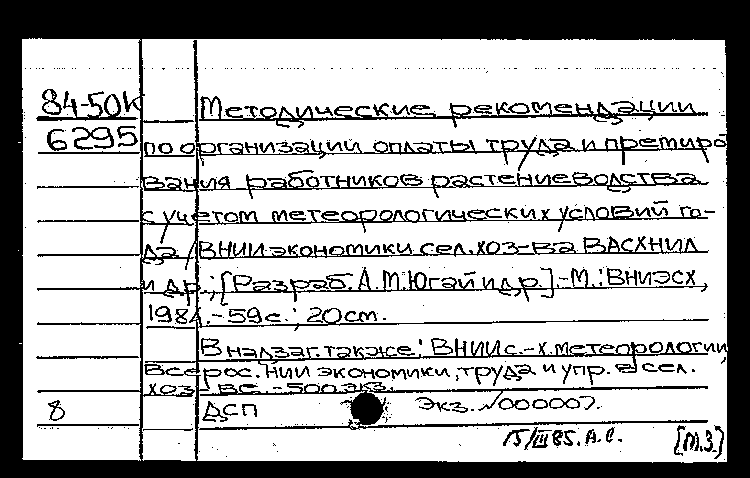 84-50К Методические рекомендации
6295 по организации оплаты труда и премиро
вания работников растениеводства
с учетом метеорологических условий го-
да / ВНИИ экономики сел. хоз-ва ВАСХНИЛ
и др.; [Разраб. А.М. Югай и др.].-М.: ВНИЭСХ,
1984.-59с.; 20см.
В надзаг. также: ВНИИ с.-х. метеорологии,
Всерос. НИИ экономики, труда и упр. в сел.
хоз-ве. -500 экз.
8 ДСП Экз. №000007.
15/III 85. А.С. [М.З.]